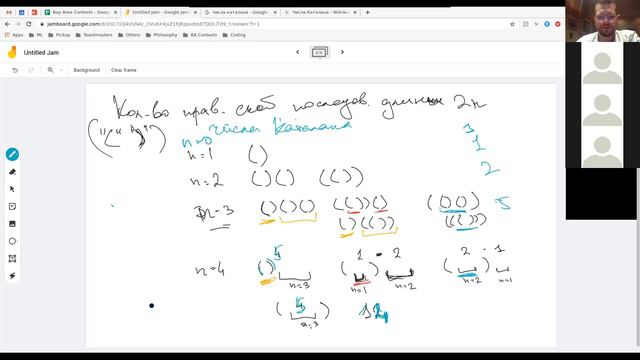 Bay Area Contests - Google
Untitled Jam - Google Jam
числа каталана - Google
Числа Каталана — Wiki
jamboard.google.com
Pickup
Testmasters
Others
Philosophy
BA Contests
Coding
Untitled Jam
Background
Clear frame
Кол-во прав. скоб последов. длины 2n
("(" ")")
числа Каталана
n=0
1
n=1 ()
1
n=2 ()() (())
2
n=3 ()()() (())() (()())
5
()(()) ((()))
5 1 · 2 2 · 1
n=4 () ( ) ( )
n=3 n=1 n=2 n=2 n=1
5
( )
n=3